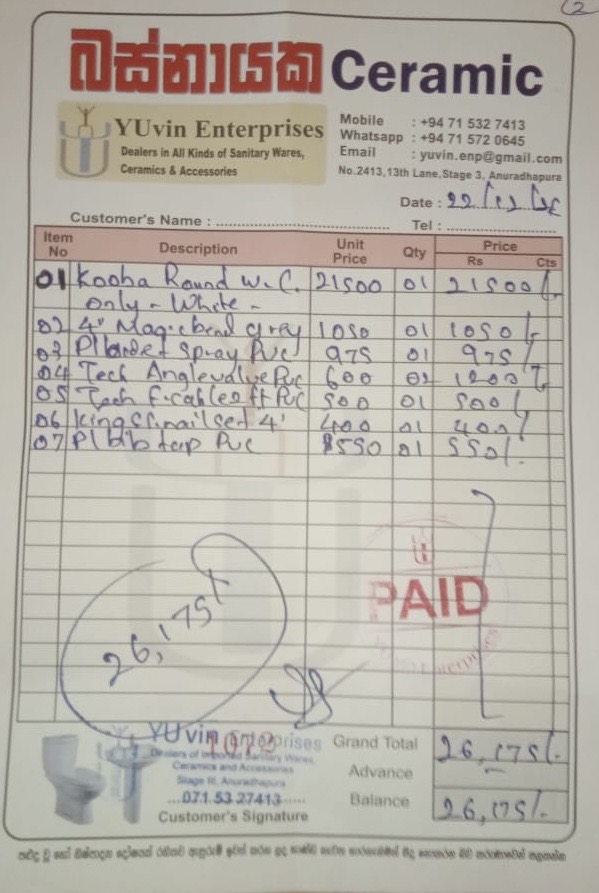 2
බස්නායක Ceramic
YUvin Enterprises
Dealers in All Kinds of Sanitary Wares,
Ceramics & Accessories
Mobile : +94 71 532 7413
Whatsapp : +94 71 572 0645
Email : yuvin.enp@gmail.com
No.2413,13th Lane,Stage 3, Anuradhapura
Date : 22/12/
Customer's Name : Tel :
Item No Description Unit Price Qty Price Rs Cts
01 Kooha Round W.C. 21500 01 21500/-
only - White -
02 4" Magic bend grey 1050 01 1050/-
03 Pl Spray Pvc 975 01 975/-
04 Tech Anglevalve Pvc 600 02 1200/-
05 Tech ft Pvc 500 01 500/-
06 nail set 4' 400 01 400/-
07 Pl bib tap Pvc 550 01 550/-
PAID
Enterprises
26,175/-
YUvin Enterprises
Dealers of Imported Sanitary Wares,
Ceramics and Accessories
Stage III, Anuradhapura
071 53 27413
Customer's Signature
Grand Total 26,175/-
Advance
Balance 26,175/-